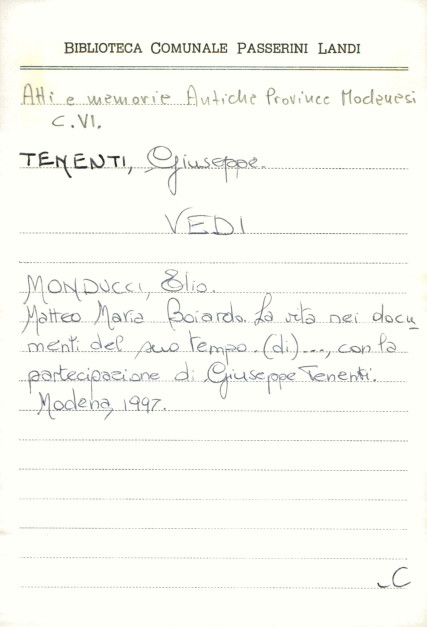 BIBLIOTECA COMUNALE PASSERINI LANDI
Atti e memorie Antiche Province Modenesi
C.VI.
TENENTI, Giuseppe.
VEDI
MONDUCCI, Elio.
Matteo Maria Boiardo. La vita nei docu
menti del suo tempo. (di)..., con la
partecipazione di Giuseppe Tenenti.
Modena, 1997.
C